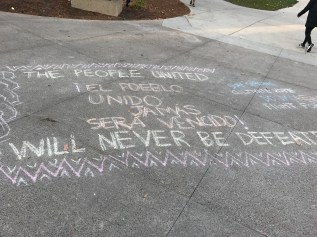 THE PEOPLE UNITED
¡EL PUEBLO
UNIDO
JAMÁS
SERÁ VENCIDO!
WILL NEVER BE DEFEATE